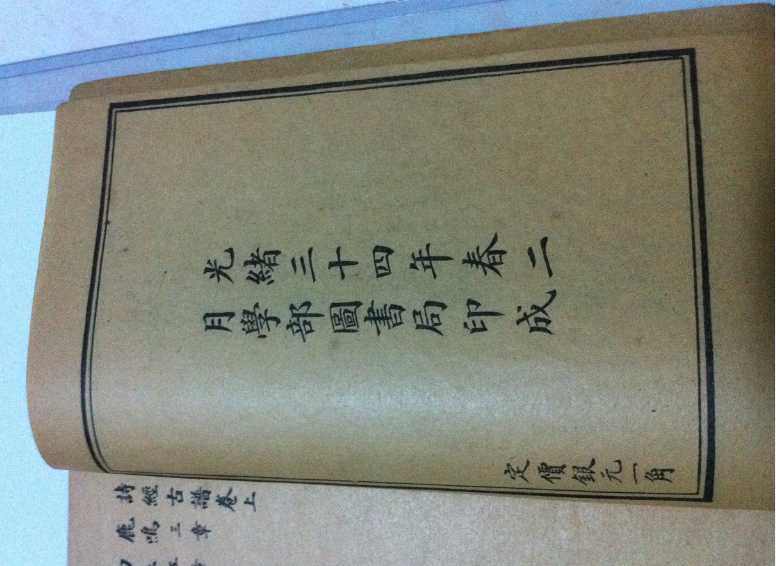 光緒三十四年春二
月學部圖書局印成
定價銀元一角
詩經古譜卷上
鹿鳴三章